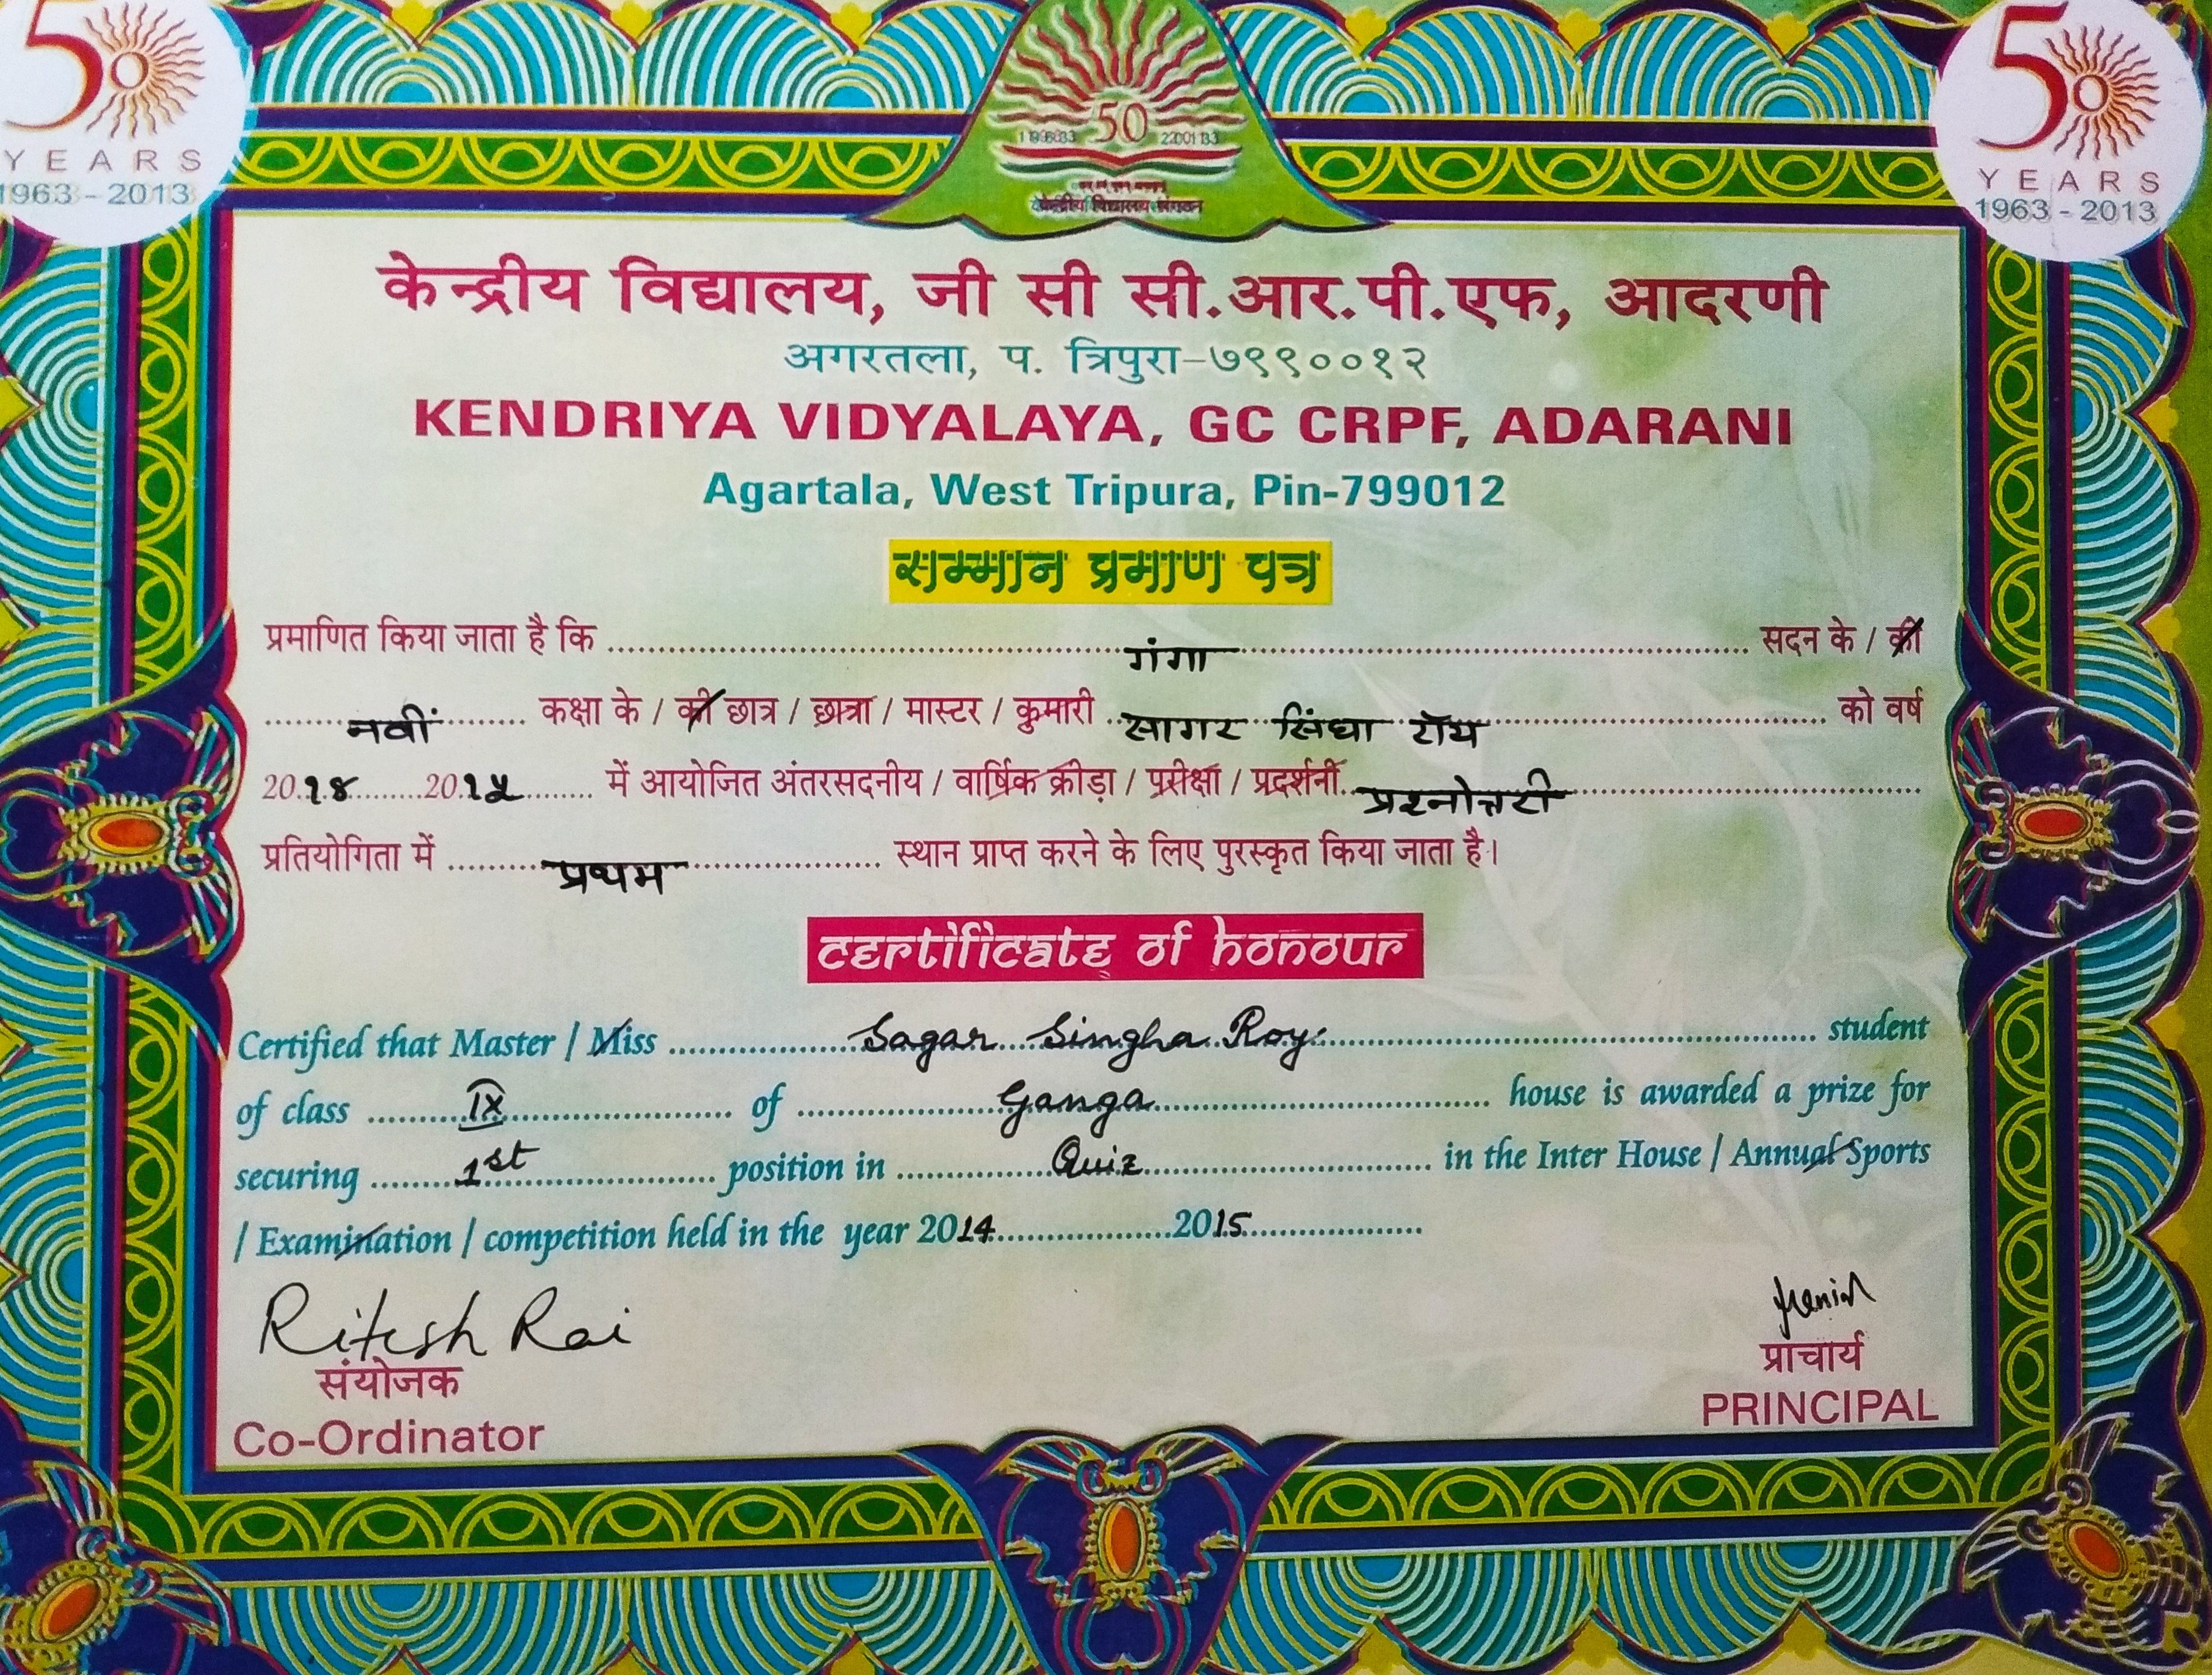 50
YEARS
1963 - 2013
50
केन्द्रीय विद्यालय संगठन
50
YEARS
1963 - 2013
केन्द्रीय विद्यालय, जी सी सी.आर.पी.एफ, आदरणी
अगरतला, प. त्रिपुरा-७९९००१२
KENDRIYA VIDYALAYA, GC CRPF, ADARANI
Agartala, West Tripura, Pin-799012
सम्मान प्रमाण पत्र
प्रमाणित किया जाता है कि गंगा सदन के / की
नवीं कक्षा के / की छात्र / छात्रा / मास्टर / कुमारी सागर सिंघा रॉय को वर्ष
20१४ 20१५ में आयोजित अंतरसदनीय / वार्षिक क्रीड़ा / परीक्षा / प्रदर्शनी प्रश्नोत्तरी
प्रतियोगिता में प्रथम स्थान प्राप्त करने के लिए पुरस्कृत किया जाता है।
certificate of honour
Certified that Master / Miss Sagar Singha Roy student
of class IX of Ganga house is awarded a prize for
securing 1st position in Quiz in the Inter House / Annual Sports
/ Examination / competition held in the year 2014 2015
Ritesh Rai
संयोजक
Co-Ordinator
प्राचार्य
PRINCIPAL